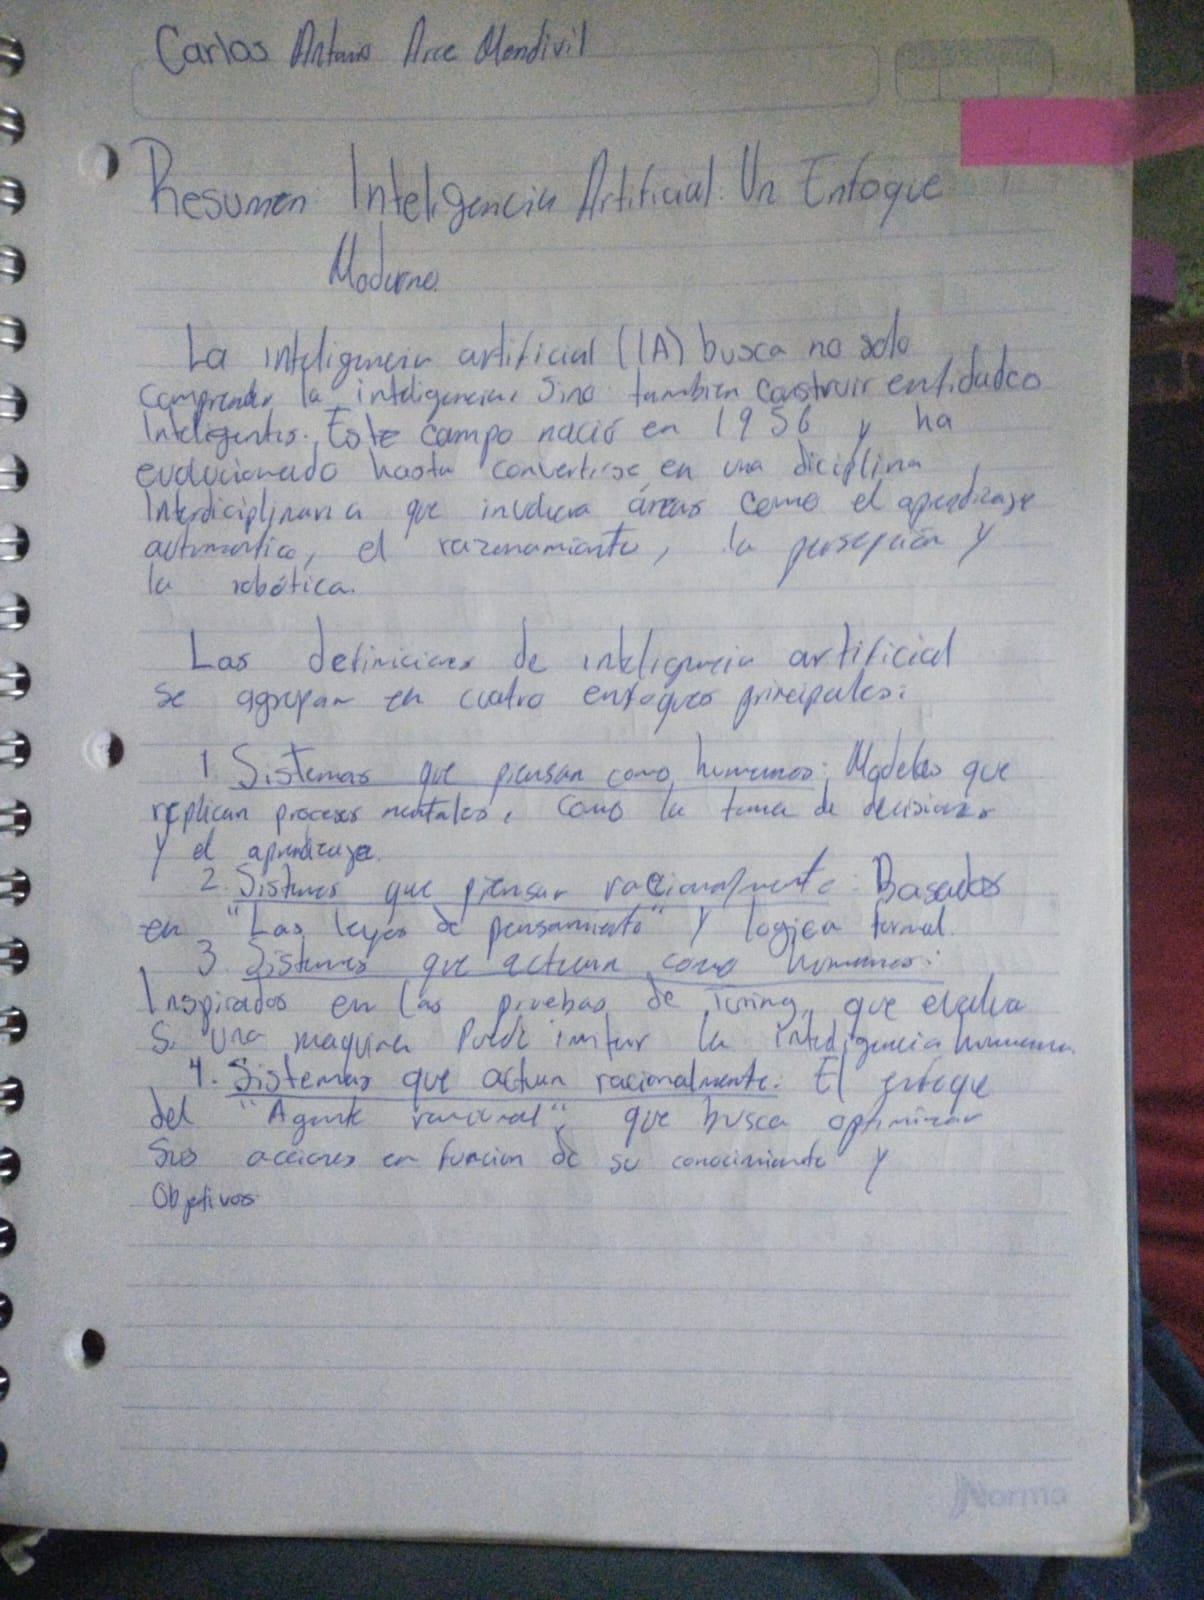 Carlos Antonio Arce Mendivil
Resumen Inteligencia Artificial. Un Enfoque
Moderno.
La inteligencia artificial (IA) busca no solo
comprender la inteligencia, sino tambien construir entidades
Inteligentes. Este campo nació en 1956 y ha
evolucionado hasta convertirse en una diciplina
Interdiciplinaria que involucra áreas como el aprendizaje
automatico, el razonamiento, la persepción y
la robótica.
Las definiciones de inteligencia artificial
se agrupan en cuatro enfoques principales:
1 Sistemas que piensan como humanos: Modelos que
replican procesos mentales, como la toma de decisiones
y el aprendizaje.
2. Sistemas que piensan racionalmente: Basados
en "Las leyes de pensamiento" y logica formal.
3. Sistemas que actuan como humanos:
Inspirados en las pruebas de Turing, que evalua
Si una maquina Puede imitar la inteligencia humana.
4. Sistemas que actuan racionalmente: El enfoque
del "Agente racional", que busca optimizar
Sus acciones en funcion de su conocimiento y
Objetivos
Norma